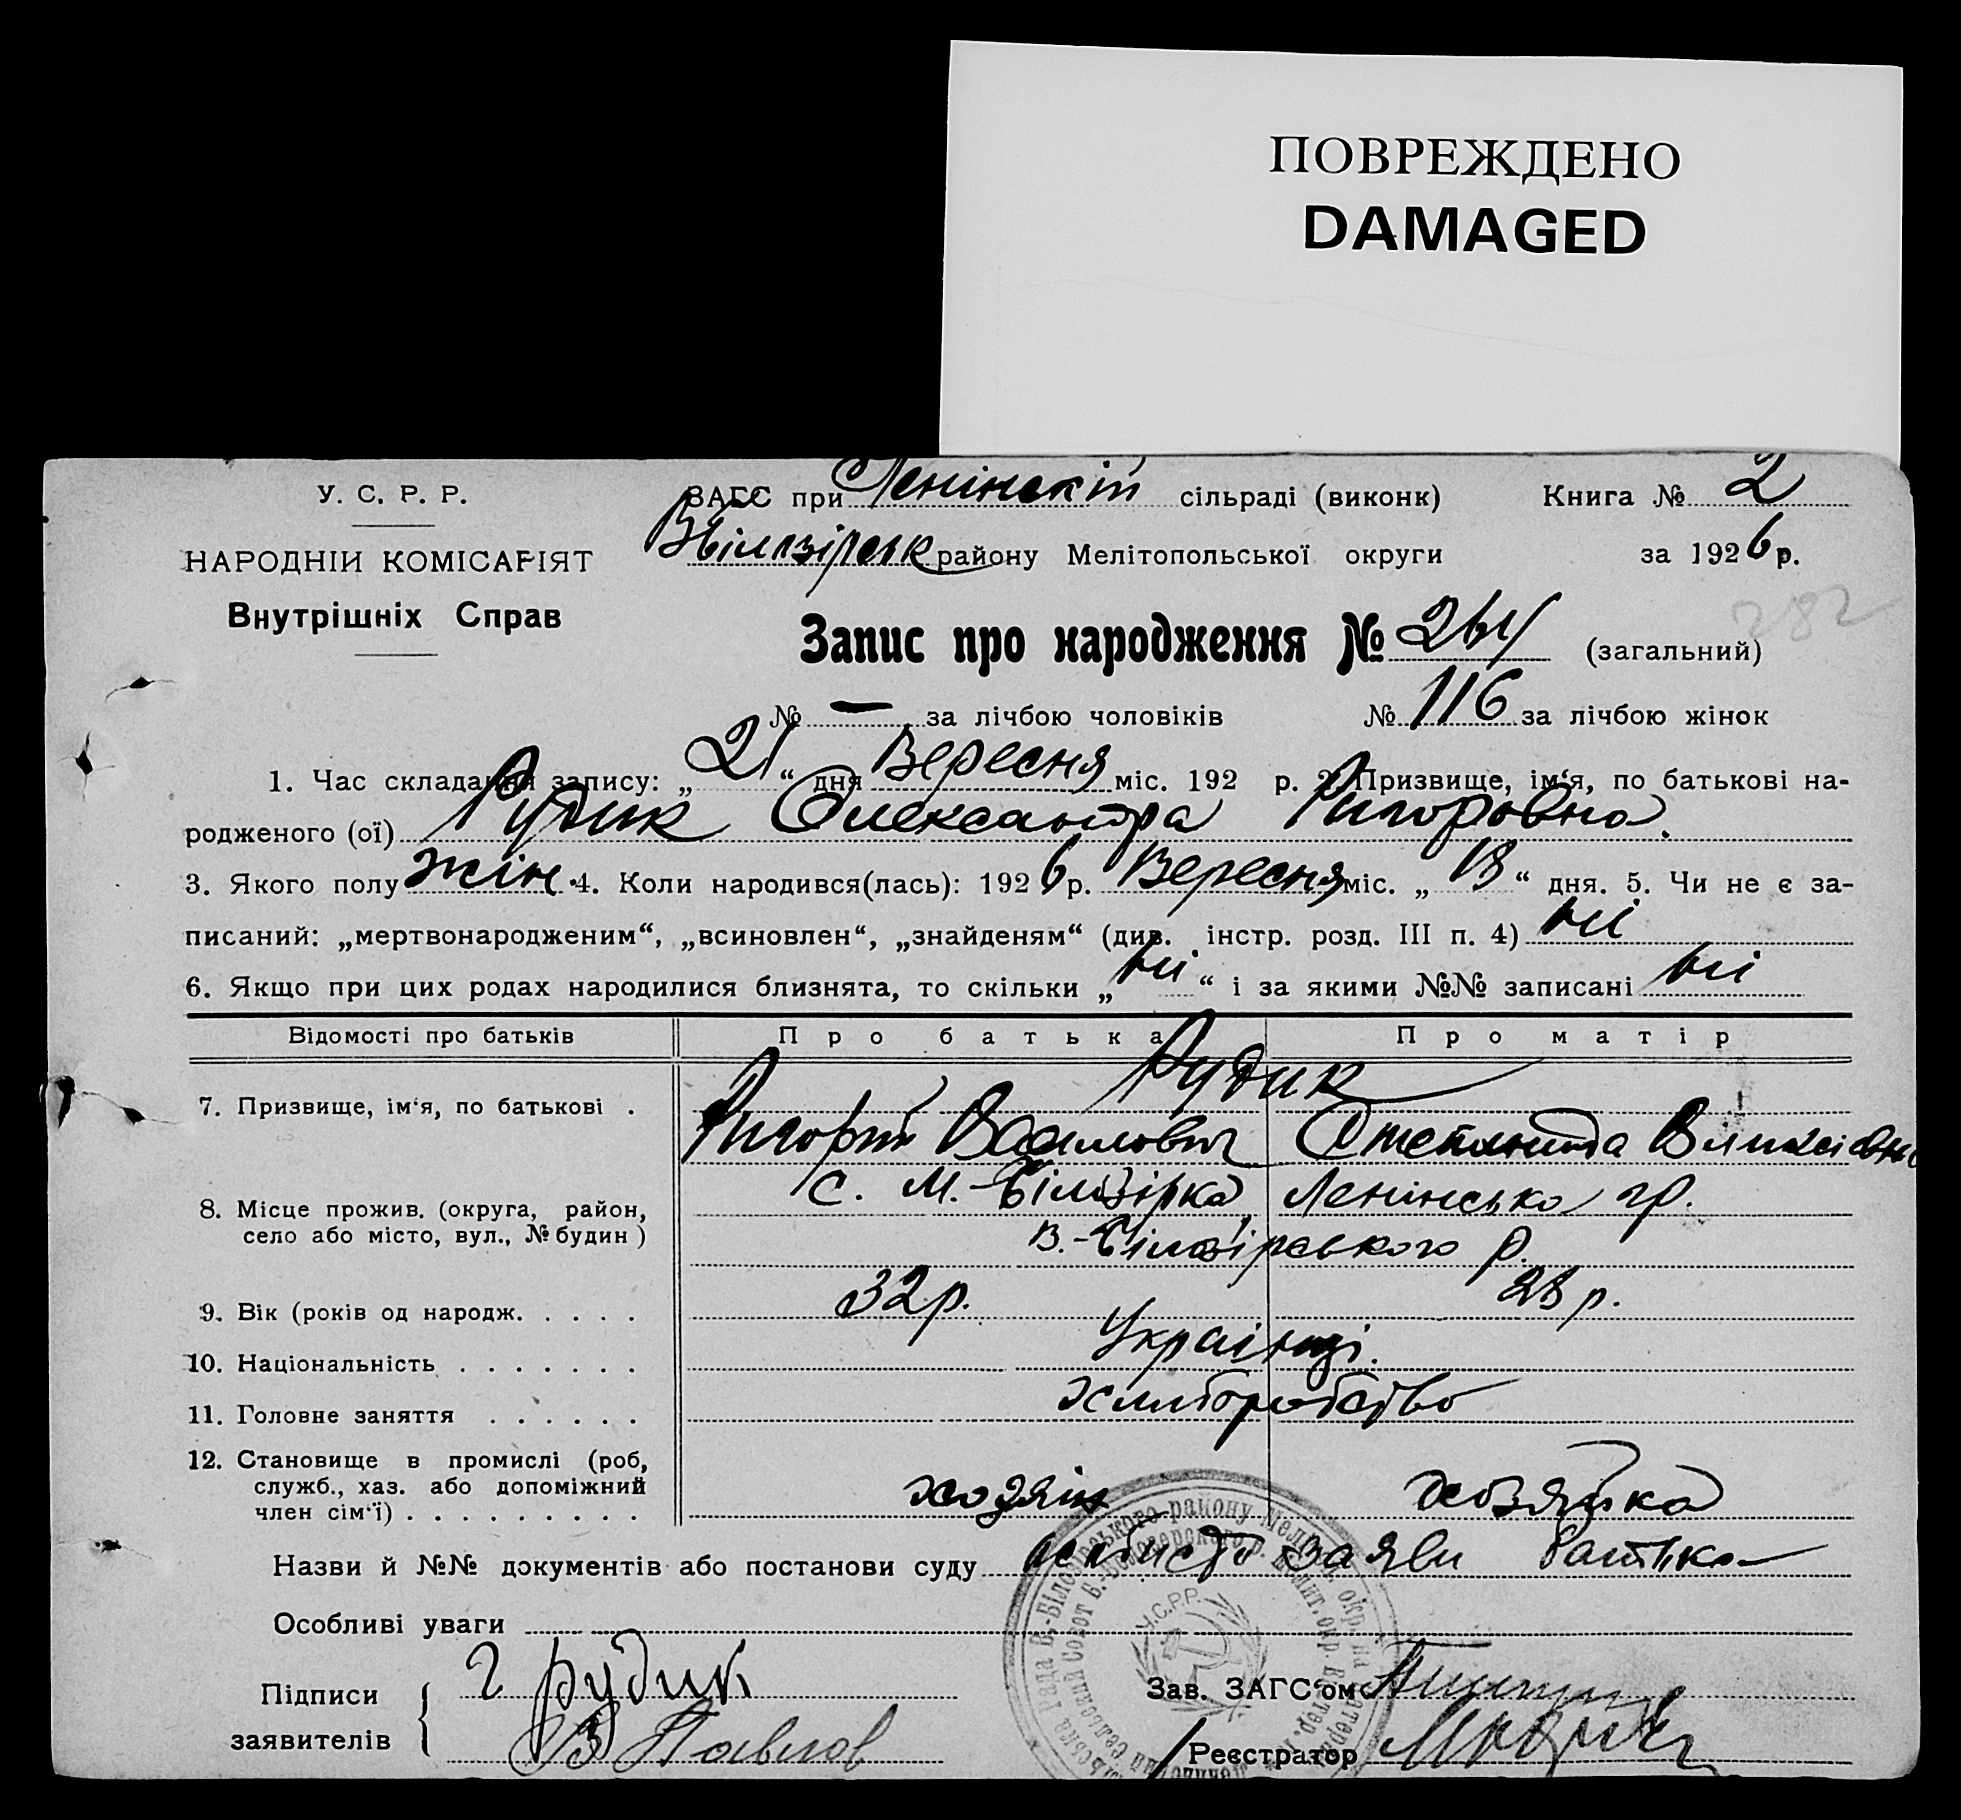 ПОВРЕЖДЕНО
DAMAGED
У. С. Р. Р.
НАРОДНІЙ КОМІСАРІЯТ
Внутрішніх Справ
ЗАГС при Ленінскій сільраді (виконк) Книга № 2
району Мелітопольської округи за 1926 р.
282
Запис про народження № 264 (загальний)
№ — за лічбою чоловіків № 116 за лічбою жінок
1. Час складання запису: „21“ дня Вересня міс. 192 р. 2. Призвище, ім‘я, по батькові на-
родженого (ої) Рудик Олександра Григоровна.
3. Якого полу жін. 4. Коли народився(лась): 1926 р. Вересня міс. „ “ дня. 5. Чи не є за-
писаний: „мертвонародженим“, „всиновлен“, „знайденям“ (див. інстр. розд. III п. 4) ні
6. Якщо при цих родах народилися близнята, то скільки „ні“ і за якими №№ записані ні
Відомості про батьків Про батька Про матір
Рудик
7. Призвище, ім‘я, по батькові . Григорій Васильович Степанида
8. Місце прожив. (округа, район, село або місто, вул., № будин ) с. М.-Білозірка, Ленінсько гр.
В.-Білозірського р.
9. Вік (років од народж. . . . . 32 р. 28 р.
10. Національність . . . . . . . Українці.
11. Головне заняття . . . . . . хліборобство
12. Становище в промислі (роб, служб., хаз. або допоміжний член сім‘ї) . . . . . . . . . хозяін хозяйка
Назви й №№ документів або постанови суду особисто заяви батька
Особливі уваги
У.С.Р.Р.
Підписи заявителів Г Рудик
В Павлов
Зав. ЗАГС‘ом
Реєстратор